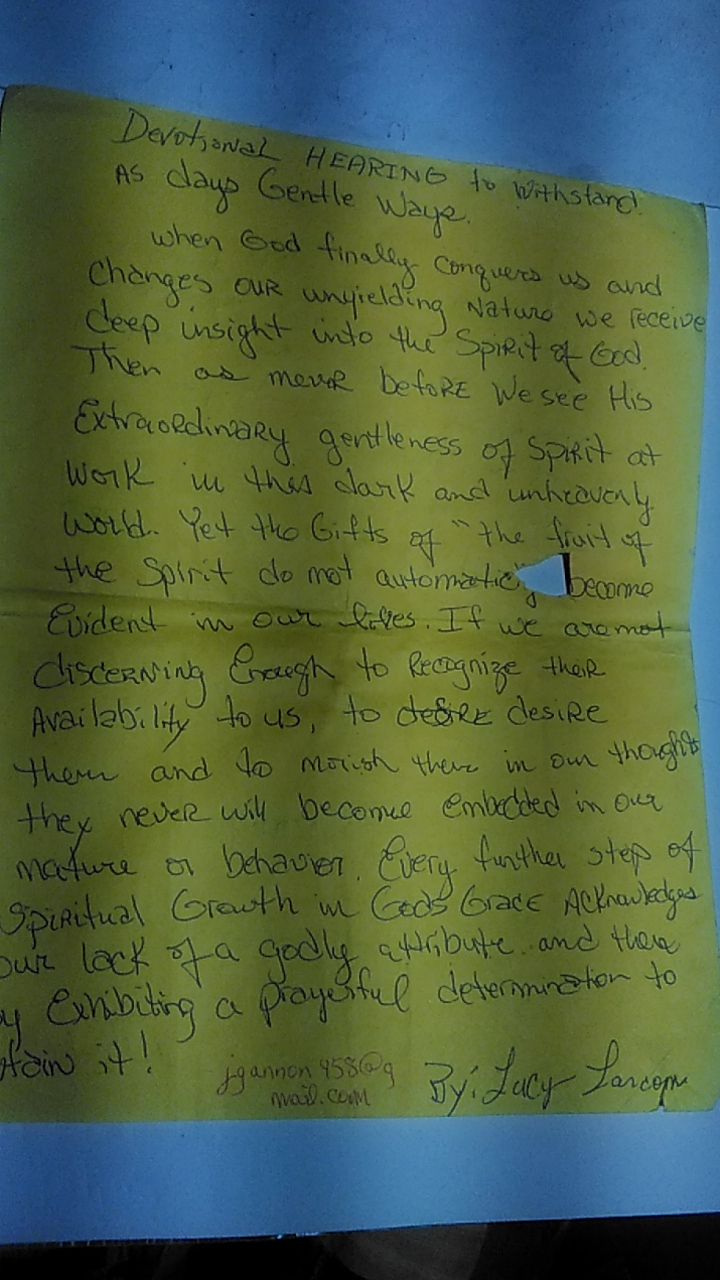 Devotional HEARING to Withstand
As days Gentle Ways.
when God finally Conquers us and
Changes OUR unyielding Nature we receive
deep insight into the Spirit of God.
Then as never before We see His
Extraordinary gentleness of Spirit at
Work in this dark and unheavenly
World. Yet the Gifts of "the fruit of
the Spirit do not automatic" y become
Evident in our lives. If we are not
discerning Enough to Recognize their
Availability to us, to desire desire
them and to nourish them in our thoughts
they never will become embedded in our
nature or behavior. Every further step of
Spiritual Growth in Gods Grace Acknowledges
our lack of a godly attribute and then
y Exhibiting a prayerful determination to
tain it!
jgannon458@g
mail.com
By: Lucy